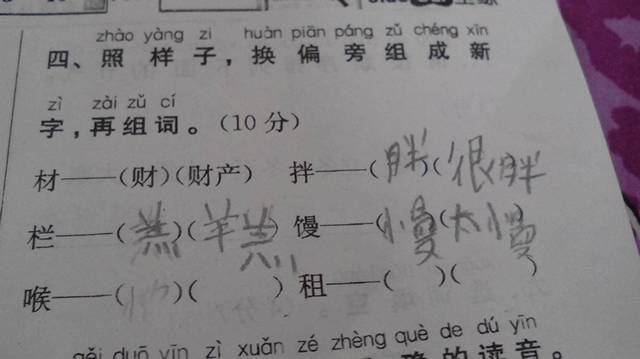 zhào yàng zi huàn piān páng zǔ chéng xīn
四、照样子，换偏旁组成新
zì zài zǔ cí
字，再组词。（10分）
材——（财）（财产） 拌——（胖）（很胖
栏——（ ）（羊 ） 馒——（慢）（太慢）
喉——（ ）（ ） 租——（ ）（ ）
gěi duō yīn zì xuǎn zé zhèng què de dú yīn
确的读音。